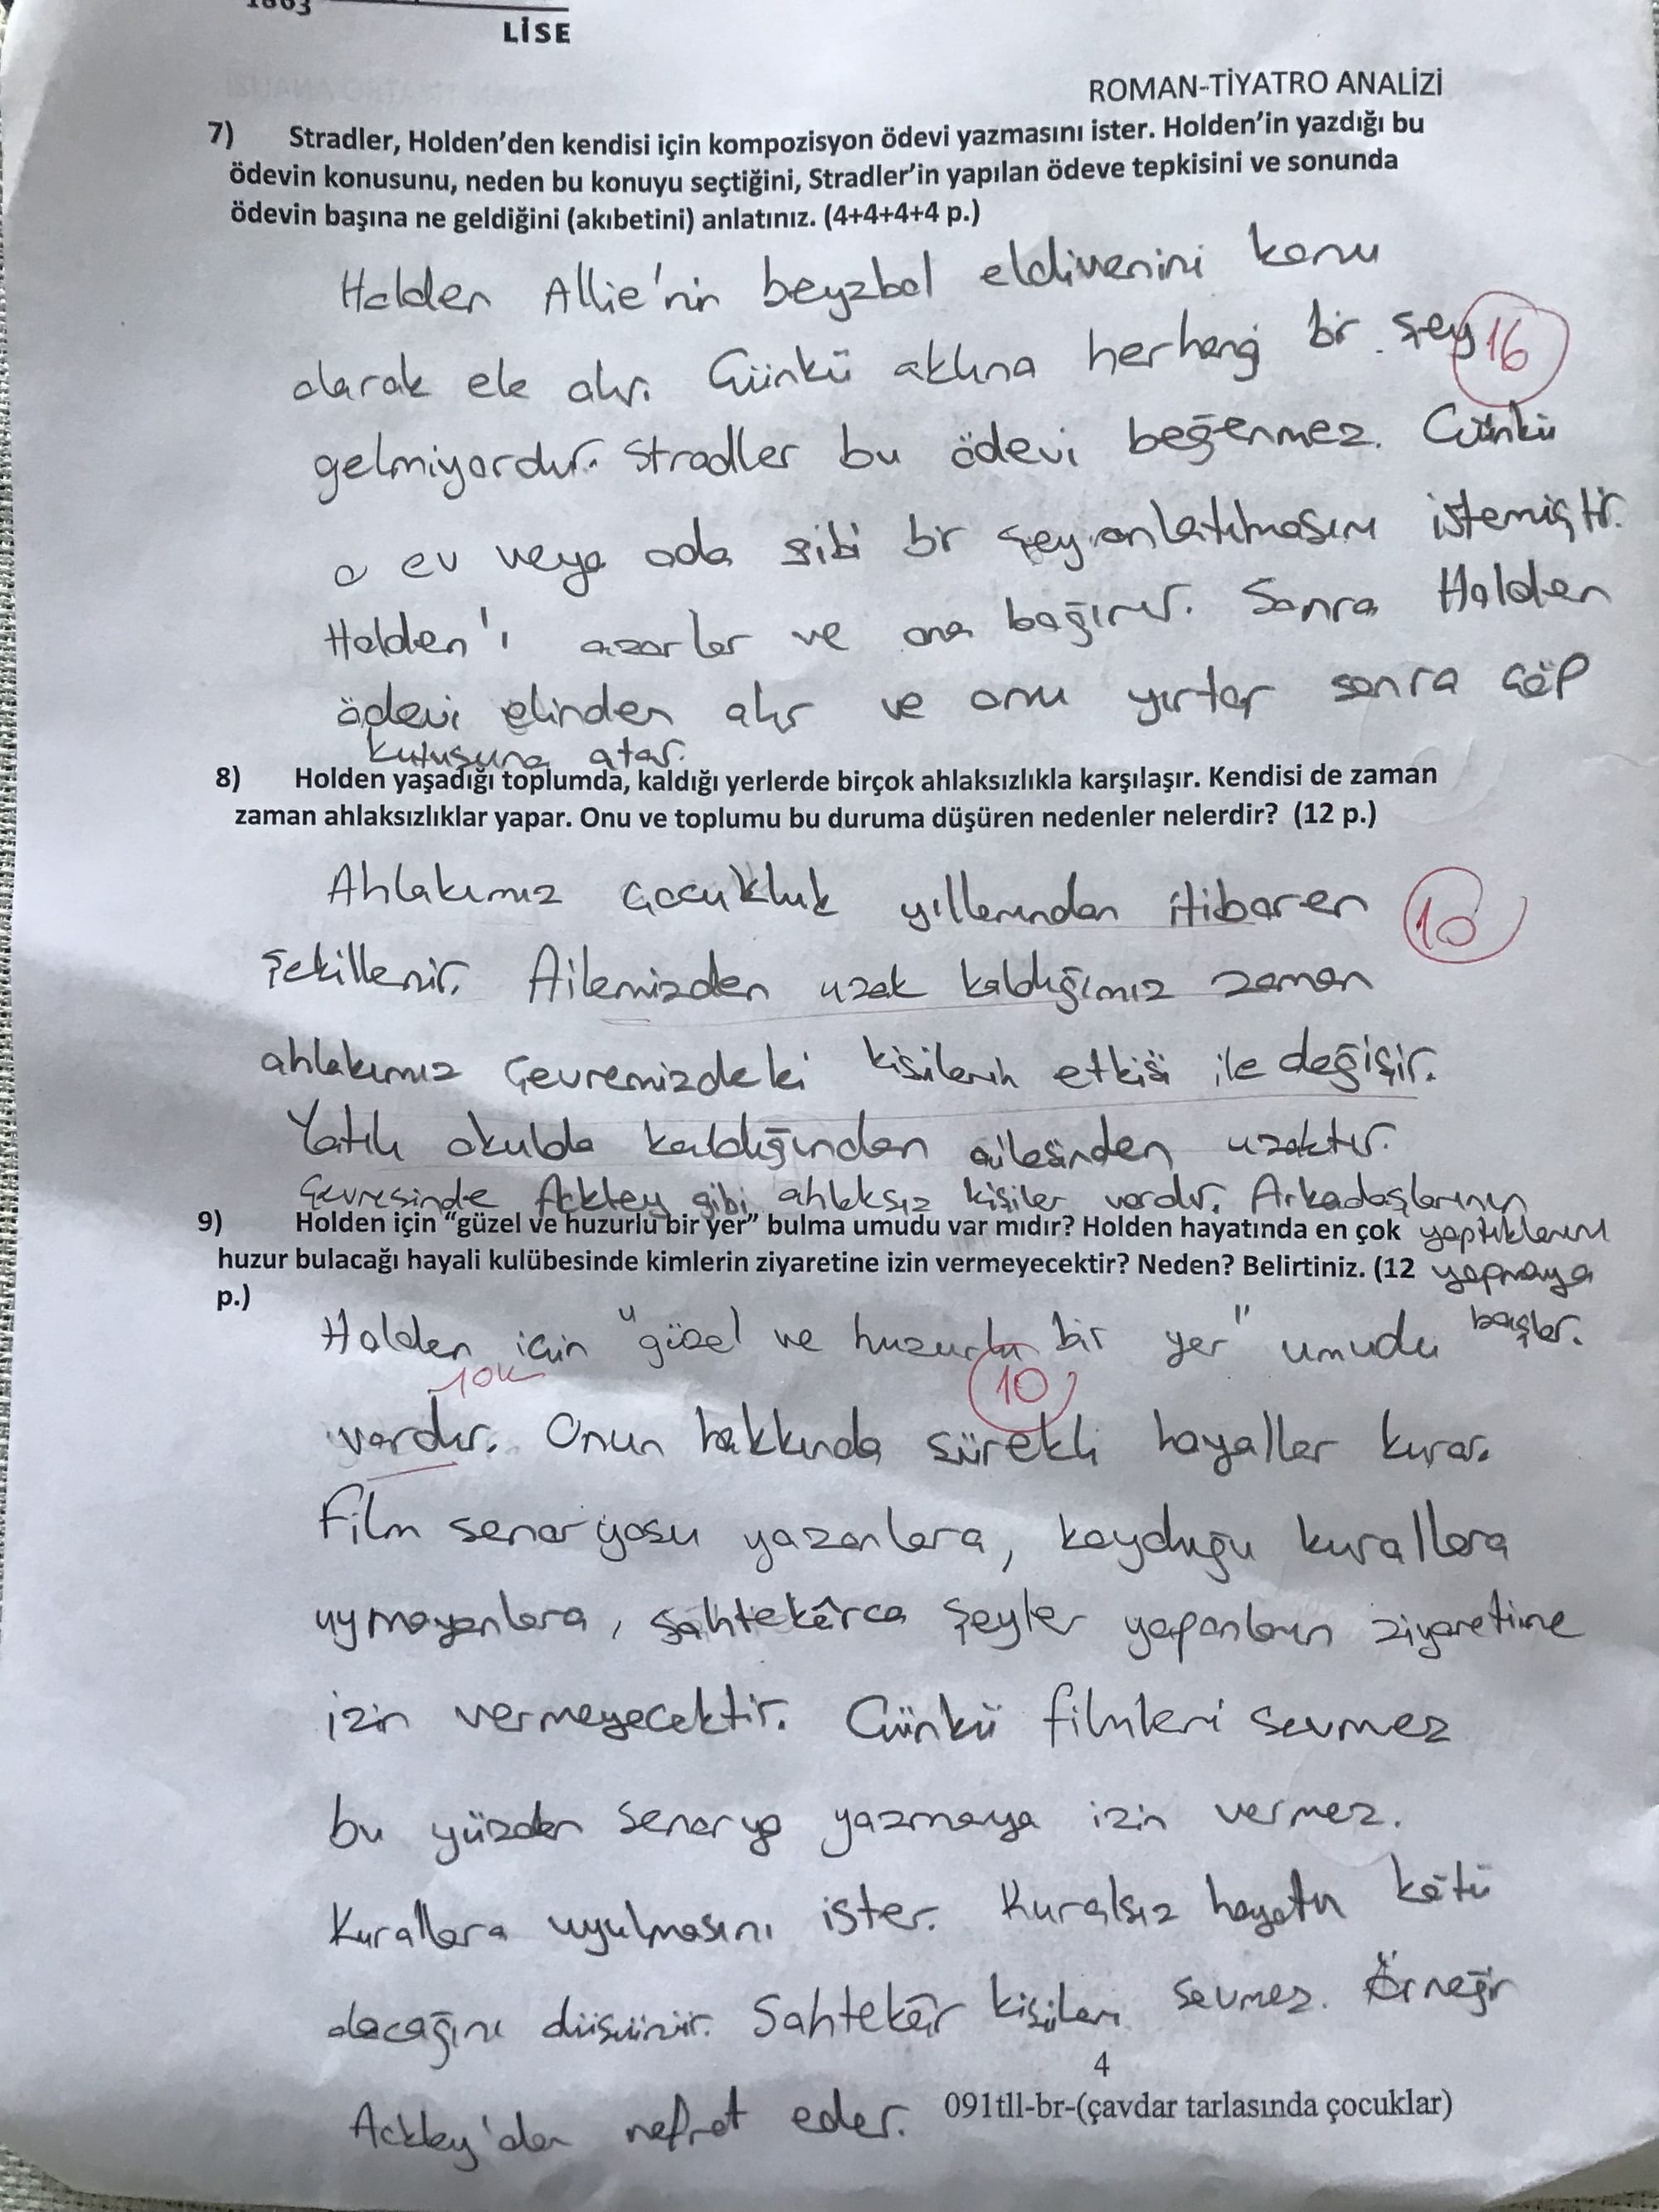 1863
LİSE
ROMAN-TİYATRO ANALİZİ
7) Stradler, Holden'den kendisi için kompozisyon ödevi yazmasını ister. Holden'in yazdığı bu
ödevin konusunu, neden bu konuyu seçtiğini, Stradler'in yapılan ödeve tepkisini ve sonunda
ödevin başına ne geldiğini (akıbetini) anlatınız. (4+4+4+4 p.)
Holden Allie'nin beyzbol eldivenini konu
olarak ele alır. Çünkü aklına herhangi bir şey 16
gelmiyordur. Stradler bu ödevi beğenmez. Çünkü
o ev veya oda gibi bir şey anlatılmasını istemiştir.
Holden'ı azarlar ve ona bağırır. Sonra Holden
ödevi elinden alır ve onu yırtar sonra çöp
kutusuna atar.
8) Holden yaşadığı toplumda, kaldığı yerlerde birçok ahlaksızlıkla karşılaşır. Kendisi de zaman
zaman ahlaksızlıklar yapar. Onu ve toplumu bu duruma düşüren nedenler nelerdir? (12 p.)
Ahlakımız çocukluk yıllarından itibaren 10
şekillenir. Ailemizden uzak kaldığımız zaman
ahlakımız çevremizdeki kişilerin etkisi ile değişir.
Yatılı okulda kaldığından ailesinden uzaktır.
Çevresinde Ackley gibi ahlaksız kişiler vardır. Arkadaşlarının
yaptıklarını
yapmaya
başlar.
9) Holden için "güzel ve huzurlu bir yer" bulma umudu var mıdır? Holden hayatında en çok
huzur bulacağı hayali kulübesinde kimlerin ziyaretine izin vermeyecektir? Neden? Belirtiniz. (12
p.)
Holden için "güzel ve huzurlu bir yer" umudu
yok 10
vardır. Onun hakkında sürekli hayaller kurar.
Film senaryosu yazanlara, koyduğu kurallara
uymayanlara, sahtekârca şeyler yapanların ziyaretine
izin vermeyecektir. Çünkü filmleri sevmez
bu yüzden senaryo yazmaya izin vermez.
Kurallara uyulmasını ister. Kuralsız hayatın kötü
olacağını düşünür. Sahtekâr kişileri sevmez. Örneğin
Ackley'den nefret eder.
4
091tll-br-(çavdar tarlasında çocuklar)